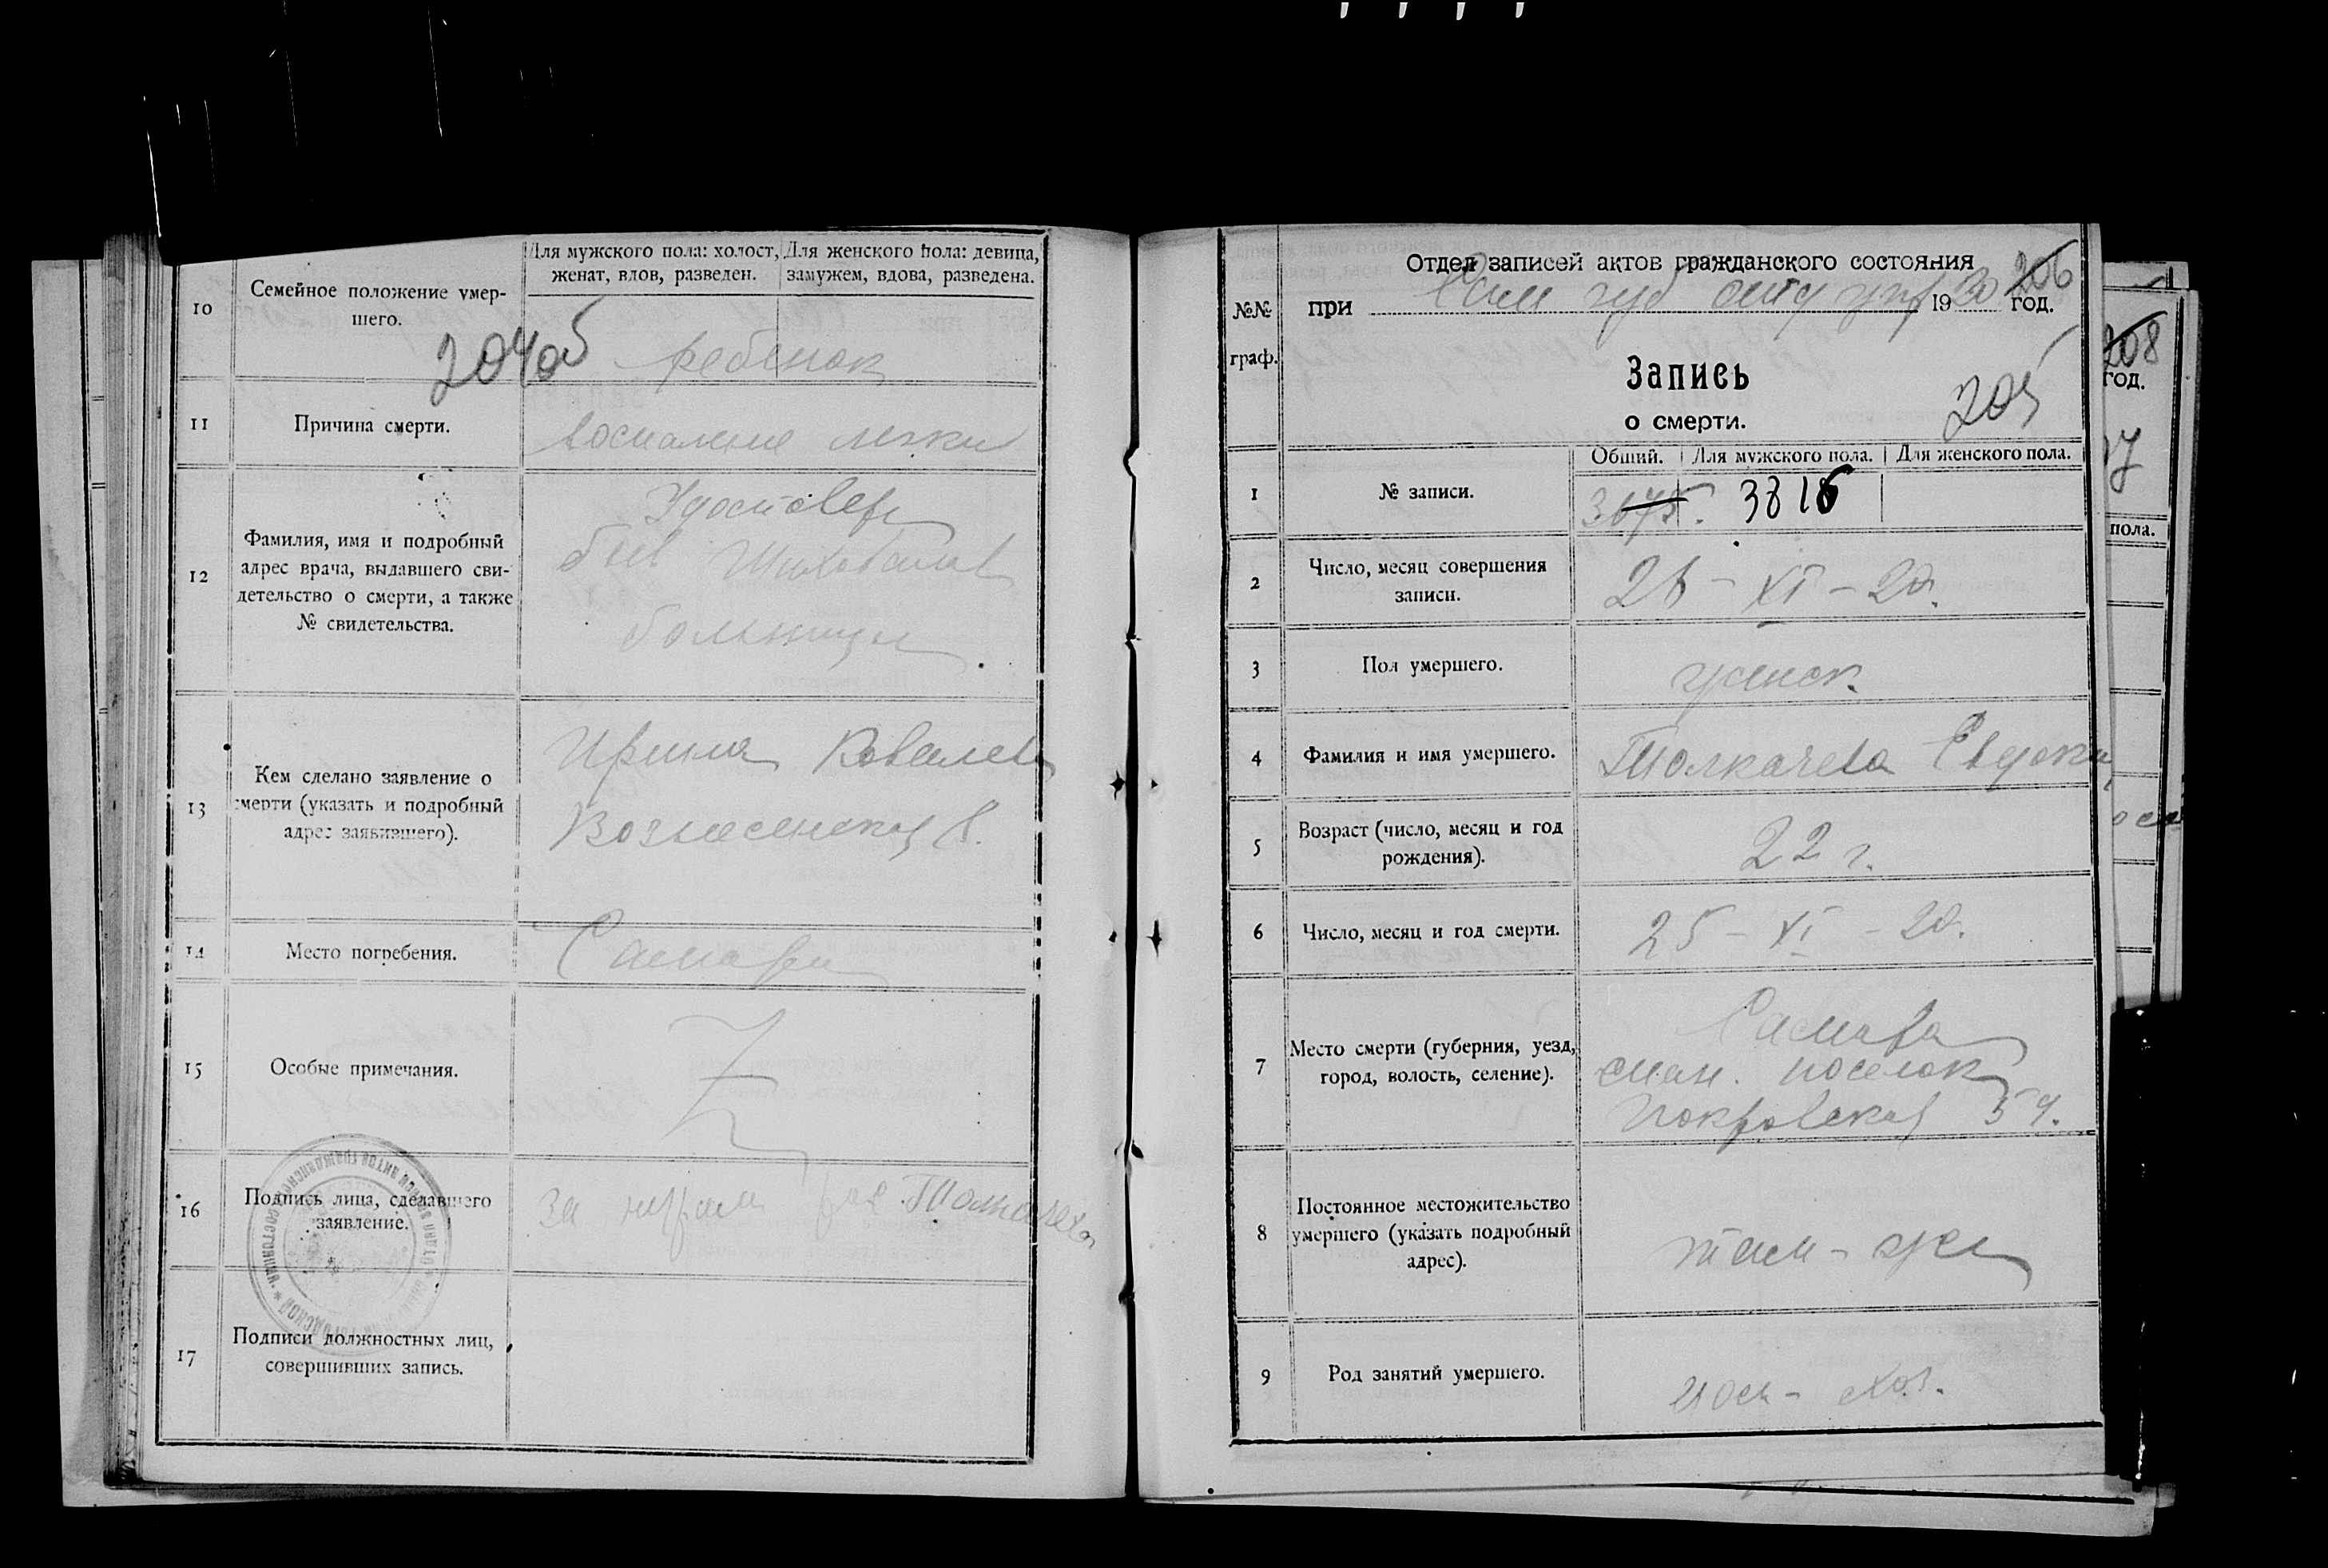 10
Семейное положение умер-
шего.
Для мужского пола: холост,
женат, вдов, разведен.
Для женского пола: девица,
замужем, вдова, разведена.
ребенок
11
Причина смерти.
воспаление легких
12
Фамилия, имя и подробный
адрес врача, выдавшего сви-
детельство о смерти, а также
№ свидетельства.
больницы
13
Кем сделано заявление о
смерти (указать и подробный
адрес заявившего).
Ирина Ковалева
Вознесенская
14
Место погребения.
Самара
15
Особые примечания.
16
Подпись лица, сделавшего
заявление.
За Толкачева
17
Подписи должностных лиц,
совершивших запись.
№№
граф.
Отдел записей актов гражданского состояния
206
при Сам губ отд упр 1920 год.
Запись
о смерти.
205
Общий. Для мужского пола. Для женского пола.
1
№ записи.
3675. 3816
2
Число, месяц совершения
записи.
26 - XI - 20.
3
Пол умершего.
женск.
4
Фамилия и имя умершего.
Толкачева Евдокия
5
Возраст (число, месяц и год
рождения).
22 г.
6
Число, месяц и год смерти.
25 - XI - 20.
7
Место смерти (губерния, уезд,
город, волость, селение).
Самара
поселок
Покровская 59.
8
Постоянное местожительство
умершего (указать подробный
адрес).
там - же
9
Род занятий умершего.
хоз.
208
год.
пола.